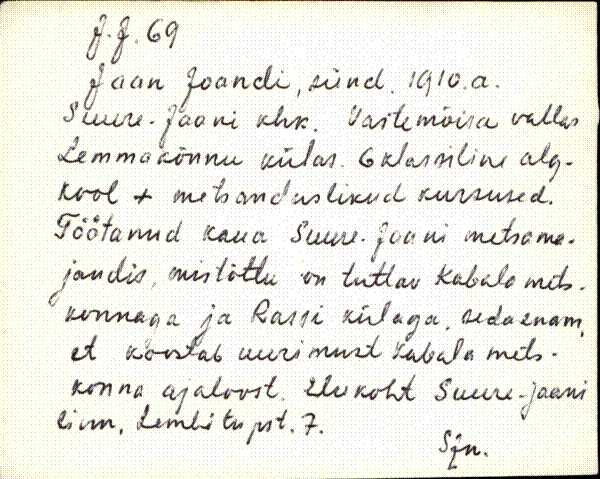 J.J. 69
Jaan Joandi, sünd. 1910.a.
Suure-Jaani khk. Vastemõisa vallas
Lemmakõnnu külas. 6 klassiline alg-
kool + metsanduslikud kursused.
Töötanud kaua Suure-Jaani metsama-
jandis, mistõttu on tuttav Kabala mets-
konnaga ja Rassi külaga, sedaenam,
et koostab uurimust Kabala mets-
konna ajaloost. Elukoht Suure-Jaani
linn, Lembitu pst. 7.